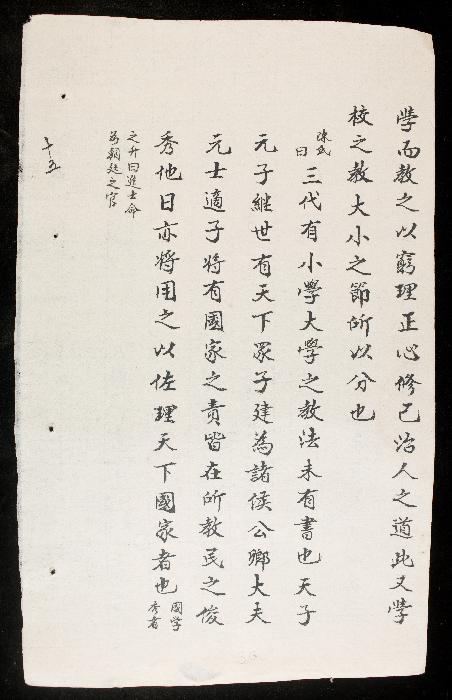 學而教之以窮理正心修己治人之道此又學
校之教大小之節所以分也
陳氏曰三代有小學大學之教法未有書也天子
元子繼世有天下眾子建為諸侯公卿大夫
元士適子將有國家之責皆在所教民之俊
秀他日亦將用之以佐理天下國家者也國学秀者
之升曰進士命
為朝廷之官
十五